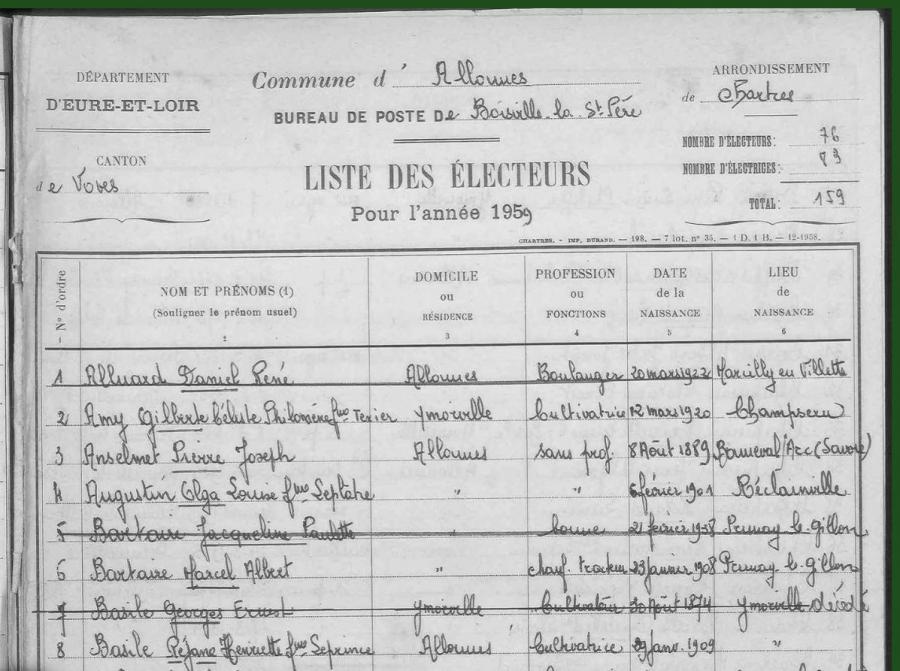 DÉPARTEMENT
D'EURE-ET-LOIR
CANTON
de Voves
Commune d' Allonnes
BUREAU DE POSTE De Boisville-la-St-Père
LISTE DES ÉLECTEURS
Pour l'année 1959
ARRONDISSEMENT
de Chartres
NOMBRE D'ÉLECTEURS: 76
NOMBRE D'ÉLECTRICES: 83
TOTAL: 159
CHARTRES. - IMP. DURAND. — 198. — 7 lot. n° 35. — 1 D. 1 B. — 12-1958.
N° d'ordre
NOM ET PRÉNOMS (1)
(Souligner le prénom usuel)
2
DOMICILE
ou
RÉSIDENCE
3
PROFESSION
ou
FONCTIONS
4
DATE
de la
NAISSANCE
5
LIEU
de
NAISSANCE
6
1 Alluard Daniel René Allonnes Boulanger 20 mars 1922 Marcilly en Villette
2 Amy Gilberte Céleste Philomène fme Texier Ymorville Cultivatrice 12 mars 1920 Champseru
3 Anselmet Pierre Joseph Allonnes sans prof. 8 Août 1889 Bonneval/Arc (Savoie)
4 Augustin Olga Louise fme " " 6 février 1901 Réclainville
5 Bartaire Jacqueline Paulette " bonne 21 février 1937 Prunay-le-Gillon
6 Bartaire Marcel Albert " chauf. tracteur 23 janvier 1908 Prunay-le-Gillon
7 Basile Georges Ernest Ymorville Cultivateur 30 Août 1874 Ymorville décédé
8 Basile Réjane Henriette fme Leprince Allonnes Cultivatrice 29 janv. 1909 "